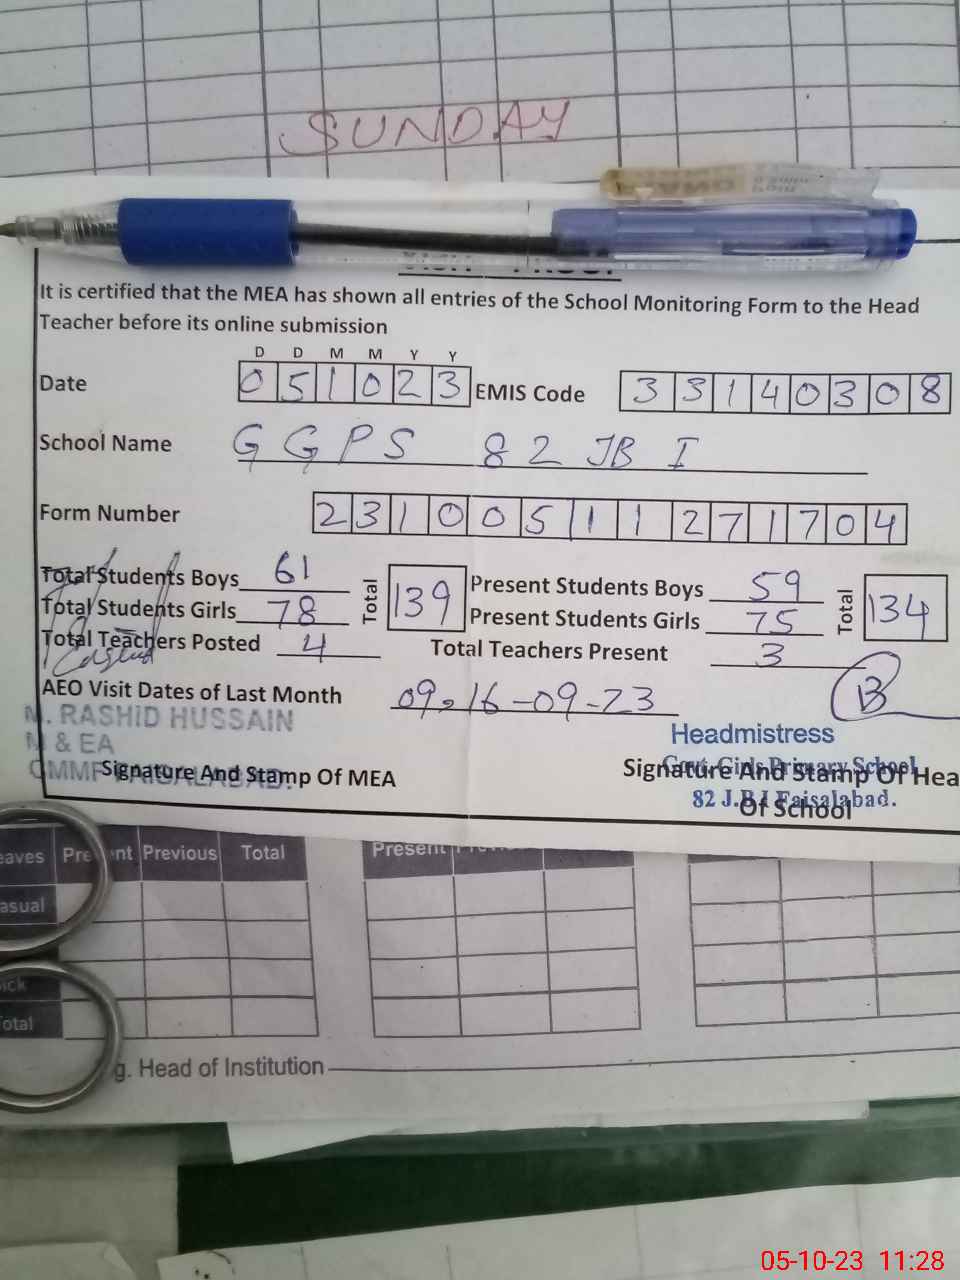 SUNDAY
It is certified that the MEA has shown all entries of the School Monitoring Form to the Head
Teacher before its online submission
D D M M Y Y
Date 051023 EMIS Code 33140308
School Name GGPS 82 JB I
Form Number 23100511271704
Total Students Boys 61 Total 139 Present Students Boys 59 Total 134
Total Students Girls 78 Present Students Girls 75
Total Teachers Posted 4 Total Teachers Present 3
AEO Visit Dates of Last Month 09,16-09-23
M. RASHID HUSSAIN
M & EA
CMMF FAISALABAD.
Signature And Stamp Of MEA
Headmistress
Govt. Girls Primary School
82 J.B I Faisalabad.
Signature And Stamp Of Hea
Of School
eaves Present Previous Total Present
asual
ick
otal
g. Head of Institution
05-10-23 11:28